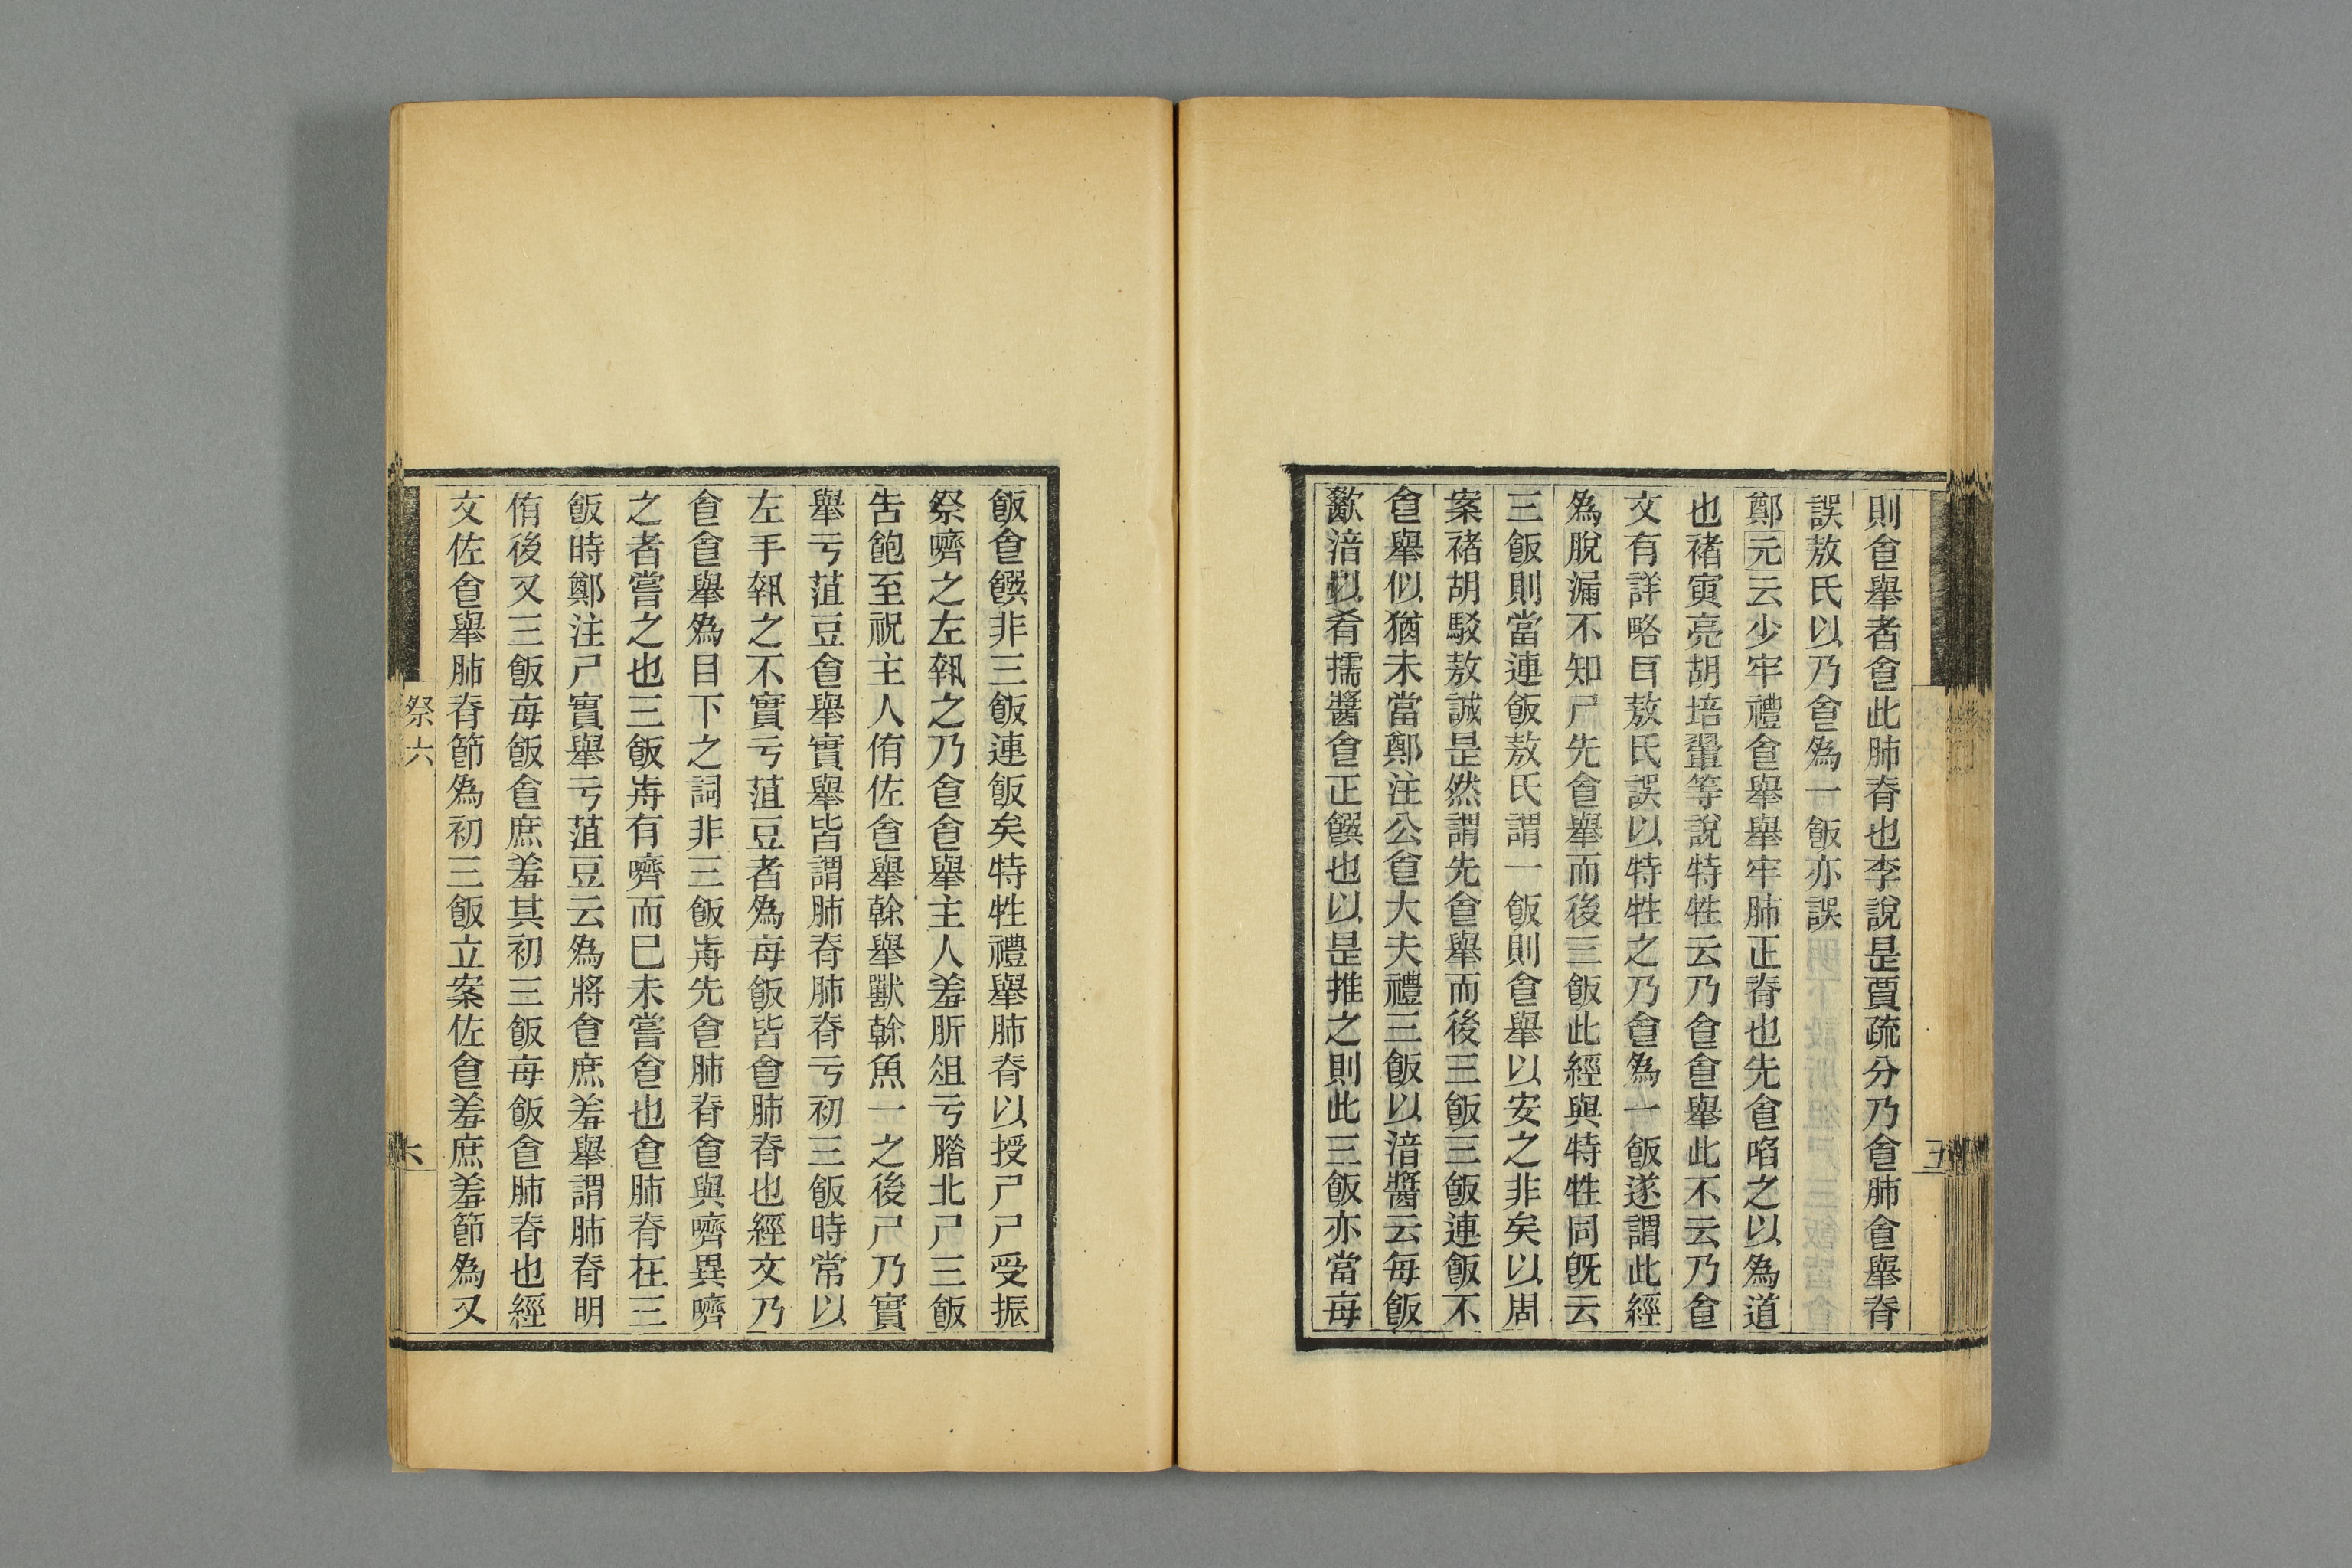 則㑹舉者㑹此肺脊也李說是賈疏分乃㑹肺㑹舉脊
誤敖氏以乃㑹為一飯亦誤
鄭元云少牢禮㑹舉舉牢肺正脊也先㑹啗之以為道
也褚寅亮胡培翬等說特牲云乃㑹㑹舉此不云乃㑹
文有詳略㠯敖氏誤以特牲之乃㑹為一飯遂謂此經
為脫漏不知尸先㑹舉而後三飯此經與特牲同旣云
三飯則當連飯敖氏謂一飯則㑹舉以安之非矣以周
案褚胡駁敖誠是然謂先㑹舉而後三飯三飯連飯不
㑹舉似猶未當鄭注公㑹大夫禮三飯以湆醬云每飯
歠湆以肴擩醬㑹正饌也以是推之則此三飯亦當每
飯㑹饌非三飯連飯矣特牲禮舉肺脊以授尸尸受振
祭嚌之左執之乃㑹㑹舉主人羞肵俎亏腊北尸三飯
告飽至祝主人侑佐㑹舉榦舉獸榦魚一之後尸乃實
舉亏菹豆㑹舉實舉皆謂肺脊肺脊亏初三飯時常以
左手執之不實亏菹豆者為每飯皆㑹肺脊也經文乃
㑹㑹舉為目下之詞非三飯歬先㑹肺脊㑹與嚌異嚌
之者嘗之也三飯歬有嚌而已未嘗㑹也㑹肺脊在三
飯時鄭注尸實舉亏菹豆云為將㑹庶羞舉謂肺脊明
侑後又三飯每飯㑹庶羞其初三飯每飯㑹肺脊也經
文佐㑹舉肺脊節為初三飯立案佐㑹羞庶羞節為又
祭六
六